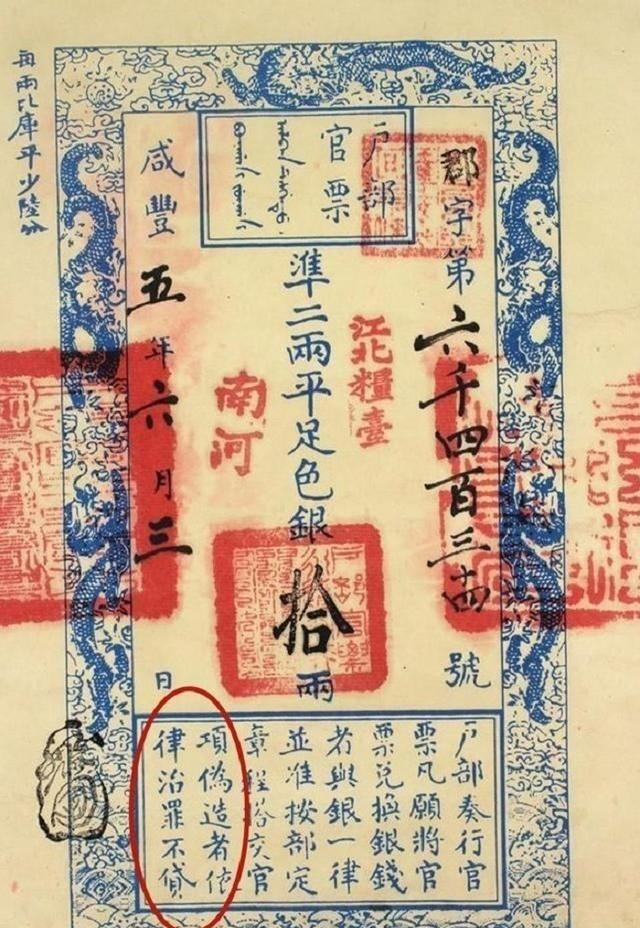 户部
官票
郡字第六千四百三十四號
江北糧臺
準二兩平足色銀拾兩
南河
咸豐五年六月三日
每兩比庫平少陸分
户部奏行官
票凡願將官
票兑換銀錢
者與銀一律
並准按部定
章程搭交官
項偽造者依
律治罪不貸